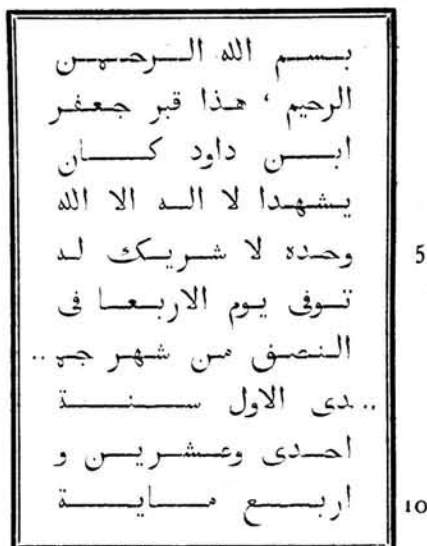 بسم الله الرحمن
الرحيم ، هذا قبر جعفر
ابن داود كان
يشهدا لا اله الا الله
وحده لا شريك له
5
توفى يوم الاربعا فى
النصق من شهر جم..
..دى الاول سنة
احدى وعشرين و
اربع ماية
10